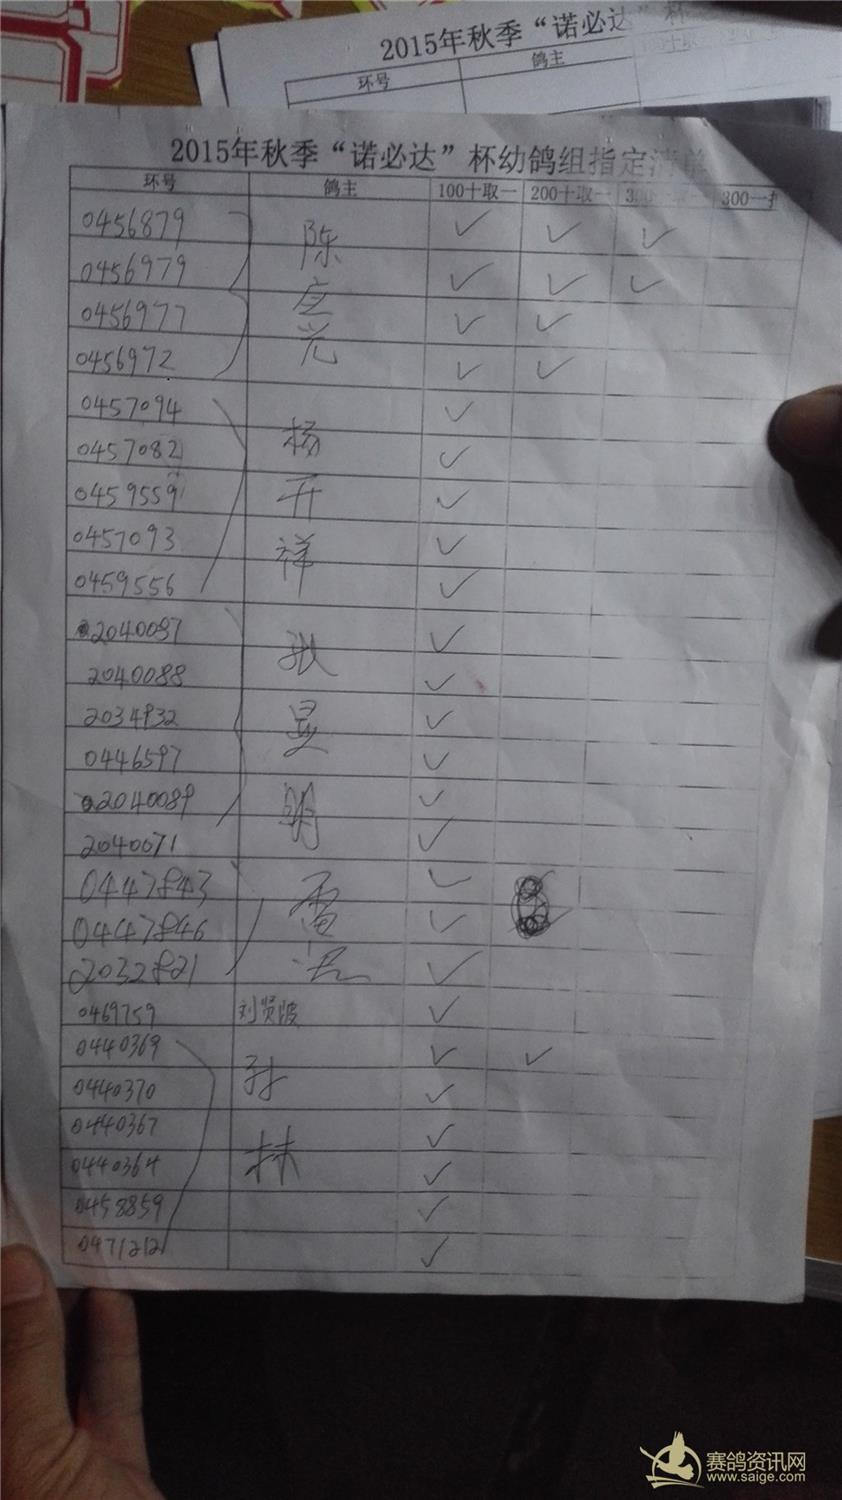 2015年秋季“诺必达”杯
环号 鸽主
2015年秋季“诺必达”杯幼鸽组指定清单
环号 鸽主 100十取一 200十取一 300十取一 300一
0456879 ✓ ✓ ✓
0456979 ✓ ✓ ✓
0456977 ✓ ✓
0456972 ✓ ✓
陈
光
0457094 ✓
0457082 ✓
0459559 ✓
0457093 ✓
0459556 ✓
杨开祥
2040087 ✓
2040088 ✓
2034932 ✓
0446597 ✓
2040089 ✓
2040071 ✓
明
0447843 ✓
0447846 ✓
2032821 ✓
雷
0469759 刘贤波 ✓
0440369 ✓ ✓
0440370 ✓
0440367 ✓
0440364 ✓
0458859 ✓
0471212 ✓
赛鸽资讯网
www.saige.com